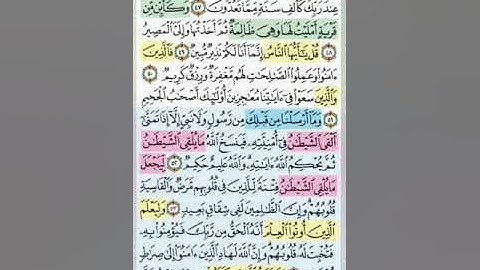 عِندَ رَبِّكَ كَأَلْفِ سَنَةٍ مِّمَّا تَعُدُّونَ ٤٧ وَكَأَيِّن مِّن
قَرْيَةٍ أَمْلَيْتُ لَهَا وَهِيَ ظَالِمَةٌ ثُمَّ أَخَذْتُهَا وَإِلَيَّ ٱلْمَصِيرُ
٤٨ قُلْ يَٰٓأَيُّهَا ٱلنَّاسُ إِنَّمَآ أَنَا۠ لَكُمْ نَذِيرٌ مُّبِينٌ ٤٩ فَٱلَّذِينَ
ءَامَنُوا۟ وَعَمِلُوا۟ ٱلصَّٰلِحَٰتِ لَهُم مَّغْفِرَةٌ وَرِزْقٌ كَرِيمٌ ٥٠
وَٱلَّذِينَ سَعَوْا۟ فِىٓ ءَايَٰتِنَا مُعَٰجِزِينَ أُو۟لَٰٓئِكَ أَصْحَٰبُ ٱلْجَحِيمِ
٥١ وَمَآ أَرْسَلْنَا مِن قَبْلِكَ مِن رَّسُولٍ وَلَا نَبِىٍّ إِلَّآ إِذَا تَمَنَّىٰٓ
أَلْقَى ٱلشَّيْطَٰنُ فِىٓ أُمْنِيَّتِهِۦ فَيَنسَخُ ٱللَّهُ مَا يُلْقِى ٱلشَّيْطَٰنُ
ثُمَّ يُحْكِمُ ٱللَّهُ ءَايَٰتِهِۦ وَٱللَّهُ عَلِيمٌ حَكِيمٌ ٥٢ لِّيَجْعَلَ
مَا يُلْقِى ٱلشَّيْطَٰنُ فِتْنَةً لِّلَّذِينَ فِى قُلُوبِهِم مَّرَضٌ وَٱلْقَاسِيَةِ
قُلُوبُهُمْ وَإِنَّ ٱلظَّٰلِمِينَ لَفِى شِقَاقٍۭ بَعِيدٍ ٥٣ وَلِيَعْلَمَ
ٱلَّذِينَ أُوتُوا۟ ٱلْعِلْمَ أَنَّهُ ٱلْحَقُّ مِن رَّبِّكَ فَيُؤْمِنُوا۟ بِهِۦ
فَتُخْبِتَ لَهُۥ قُلُوبُهُمْ وَإِنَّ ٱللَّهَ لَهَادِ ٱلَّذِينَ ءَامَنُوٓا۟ إِلَىٰ صِرَٰطٍ